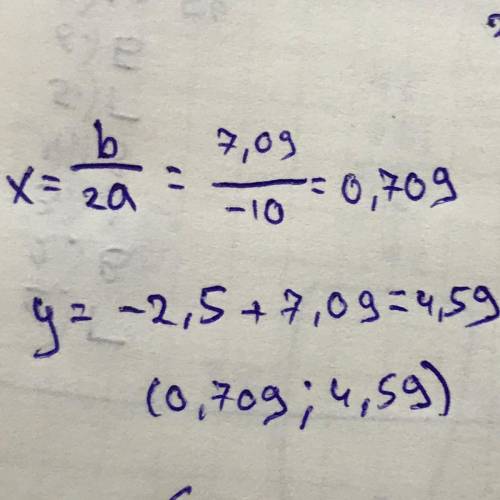 x = b/2a = 7,09/-10 = 0,709
y = -2,5 + 7,09 = 4,59
(0,709; 4,59)